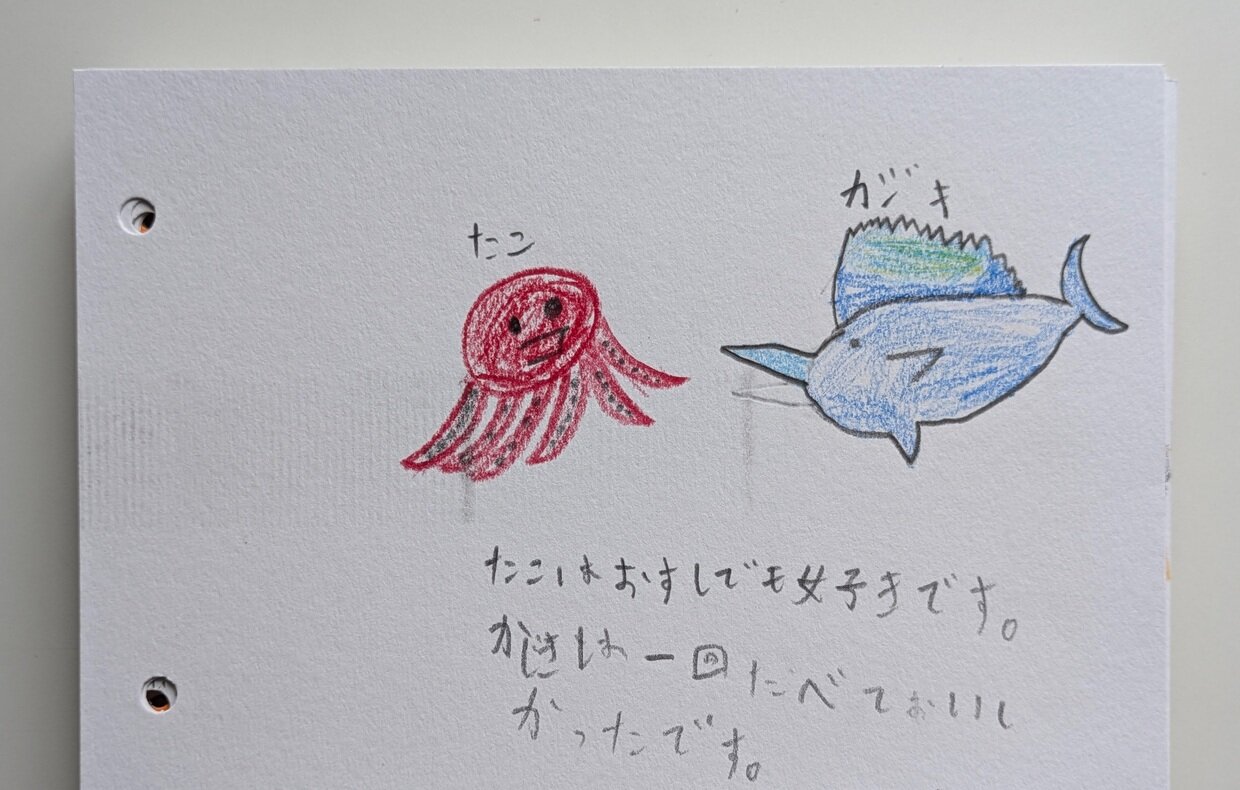 たこ
カジキ
たこはおすしでも女子きです。
かじきは一回たべておいし
かったです。